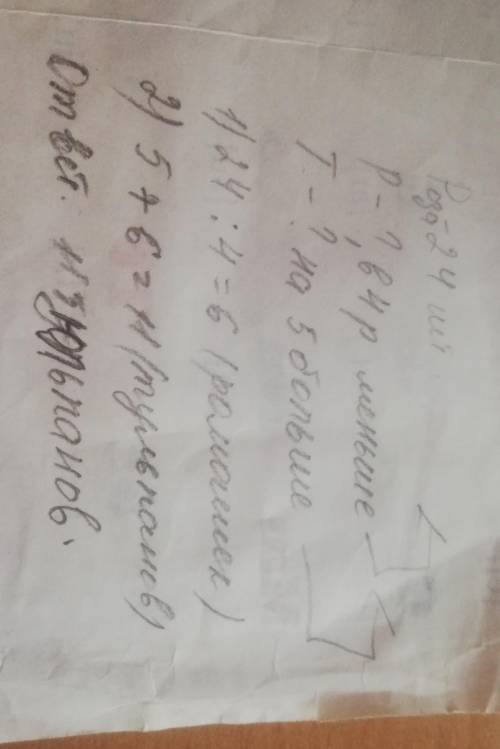 Роз-24 шт.
Р - ?, в 4 р меньше
Т - ? на 5 больше
1) 24 : 4 = 6 (ромашек)
2) 5 + 6 = 11 (тульпанов)
Ответ. 11 тюльпанов.